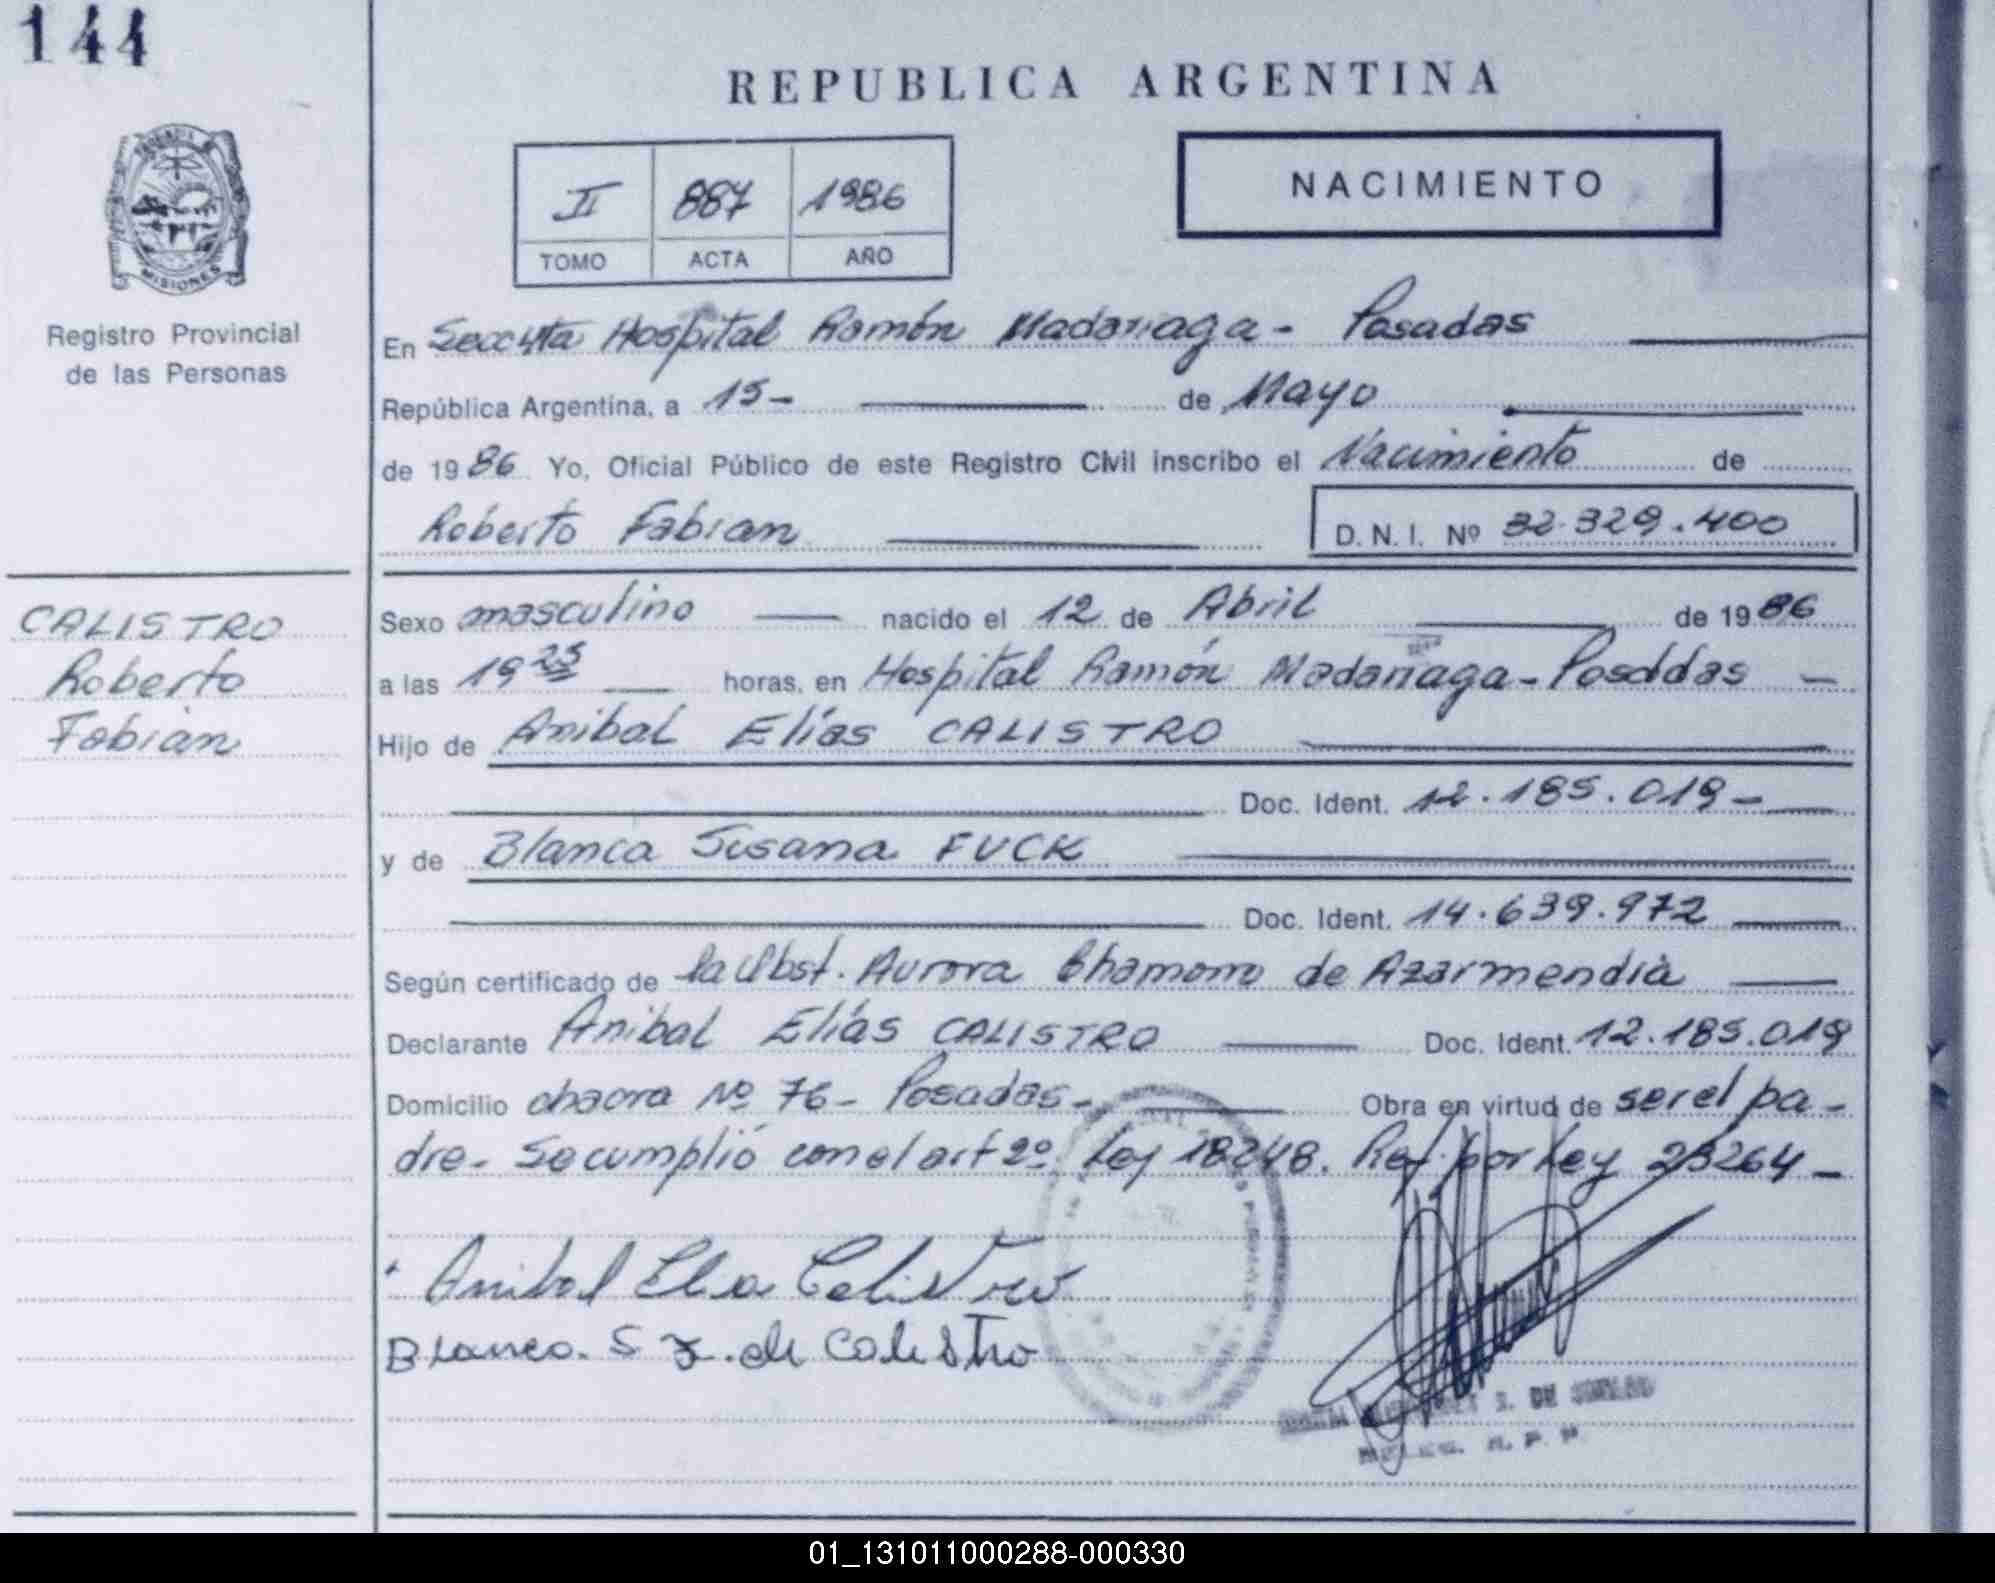 144
REPUBLICA ARGENTINA
II 887 1986
TOMO ACTA AÑO
NACIMIENTO
MISIONES
Registro Provincial
de las Personas
En Secc 4ta Hospital Ramón Madariaga - Posadas
República Argentina, a 15- de Mayo
de 1986 Yo, Oficial Público de este Registro Civil inscribo el Nacimiento de
Roberto Fabian D. N. I. Nº 32.329.400
CALISTRO
Roberto
Fabian
Sexo masculino nacido el 12 de Abril de 1986
a las 19 25 horas, en Hospital Ramón Madariaga - Posaddas -
Hijo de Anibal Elías CALISTRO
Doc. Ident. 12.185.019-
y de Blanca Susana FUCK
Doc. Ident. 14.639.972
Según certificado de la Obst. Aurora Chamorro de Azarmendia
Declarante Anibal Elías CALISTRO Doc. Ident. 12.185.019
Domicilio chacra Nº 76- Posadas- Obra en virtud de ser el pa-
dre- Se cumplió con el art 2º Ley 18248. Ref. por Ley 23264-
Anibal Elia Calistro
Blanca. S F. de Calistro
S. DE
01_131011000288-000330